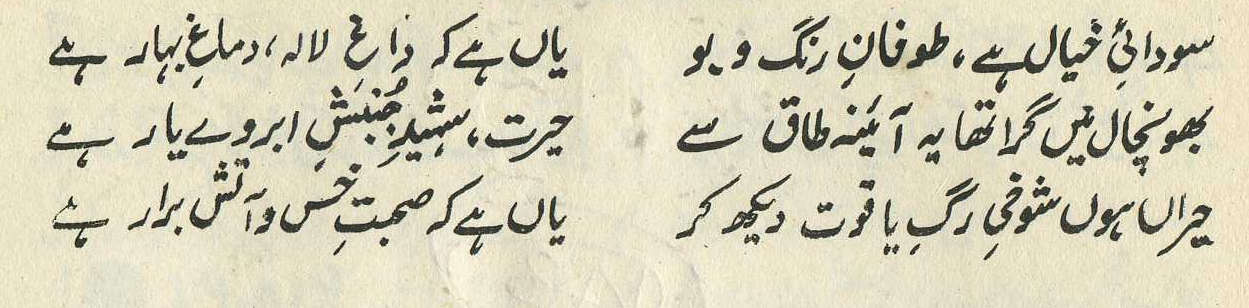 سودائیِ خیال ہے، طوفانِ رنگ و بو یاں ہے کہ داغِ لالہ، دماغِ بہار ہے
بھونچال میں گرا تھا یہ آئینہ طاق سے حیرت، شہیدِ جُنبشِ ابروے یار ہے
حیراں ہوں شوخیِ رگِ یاقوت دیکھ کر یاں ہے کہ صحبتِ خس و آتش برار ہے